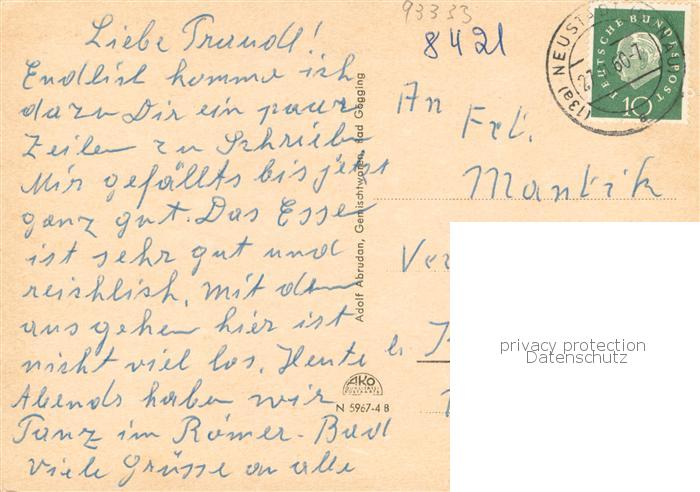 93333
8421
Liebe Traudl!
Endlish komme ish
dazu Dir ein paar
Zeilen zu Schrieben
Mir gefällts bis jetzt
ganz gut. Das Esse
ist sehr gut und
reishlish. Mit dem
ausgehen hier ist
nisht viel los. Heute
Abends haben wir
Tanz im Römer-Bad
viele Grüsse an alle
Adolf Abrudan, Gemischtwaren, Bad Gögging
AKO
QUALITÄTS-
POSTKARTE
N 5967-4 B
An
Frl.
(13a) NEUSTADT
DEUTSCHE BUNDESPOST
10
privacy protection
Datenschutz